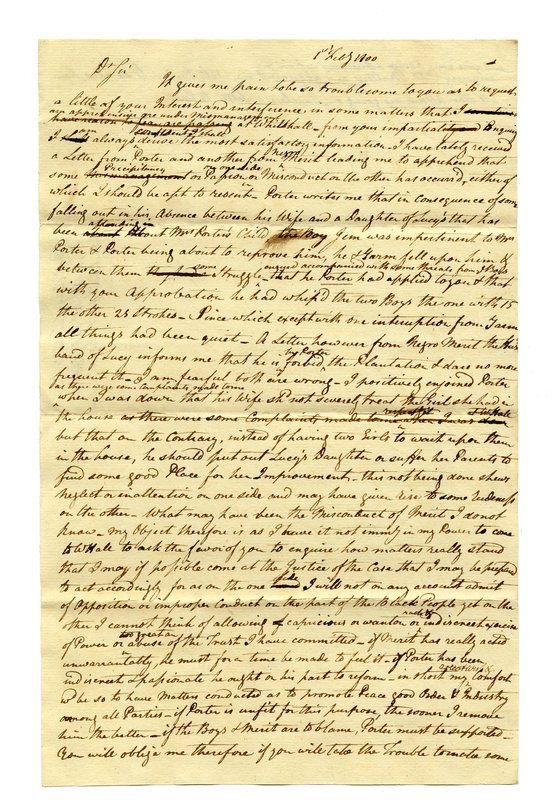 1st Feby 1800
Dr Sir
It gives me pain to be so troublesome to you as to request
a little of your Interest and interference in some matters that I
apprehensive are under Mismanagement
have reason to fear are at Whitehall - from your impartiality and Enquiry
I am confident I shall always derive the most satisfactory information. I have lately received
a Letter from Porter and another from negro Merit leading me to apprehend that
some Precipitancy on the one side or Passion or Misconduct on the other has occurred, either of
which I should be apt to resent - Porter writes me that in consequence of some
falling out in his Absence between his Wife and a Daughter of Lucy's that has
been attending on about Mrs Porter's Child, the Boy Jem was impertinent to Mrs
Porter & Porter being about to reprove him, he & Sam fell upon him &
between them some struggle ensued accompanied with some threats from ye Boys that he Porter had applied to you & that
with your Approbation he had whip'd the two Boys the one with 15
the other 25 strokes - Since which except with one interruption from Sam
all things had been quiet - A Letter however from Negro Merit the Hus
band of Lucy informs me that he is by Porter forbid, the Plantation & dare no more
frequent it - I am fearful both are wrong - I positively enjoined Porter
as there were some Complaints made to me
when I was down that his wife shd not severely treat the Girl she had in
the house as there were some Complaints made to me when I was
but that on the Contrary, instead of having two Girls to wait upon them
in the house, he should put out Lucy's Daughter or suffer her Parents to
find some good Place for her Improvement - this not being done shews
neglect or inattention on one side and may have given rise to some rudeness
on the other - What may have been the Misconduct of Merit I do not
know - my Object therefore is as I have it not immy in my Power to come
to WHall to ask the favor of you to enquire how matters really stand
that I may if possible come at the Justice of the Case that I may be prepared
to act accordingly for as on the one side I will not on any account admit
of Opposition or improper Conduct on the part of the Black People yet on the
other I cannot think of allowing of capricious or wanton or indiscreet exercise
of Power or too great an abuse of the Trust I have committed - if Merit has really acted
unwarrantably, he must for a time be made to feel it - if Porter has been
indiscreet & passionate he ought on his part to reform - in short my comfort
wd be so to have Matters conducted as to promote Peace good Order & Industry
among all Parties - if Porter is unfit for this purpose the sooner I remove
him the better - if the Boys & Merit are to blame, Porter must be supported -
You will oblige me therefore if you will take the Trouble to make some